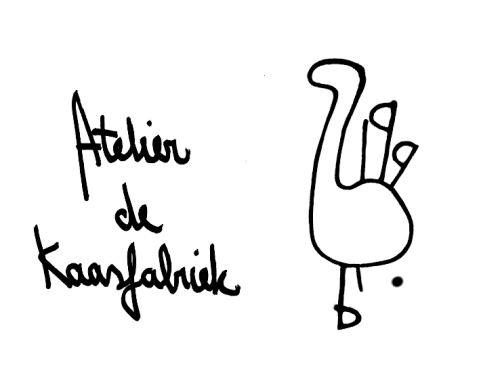 Atelier
de
Kaasfabriek